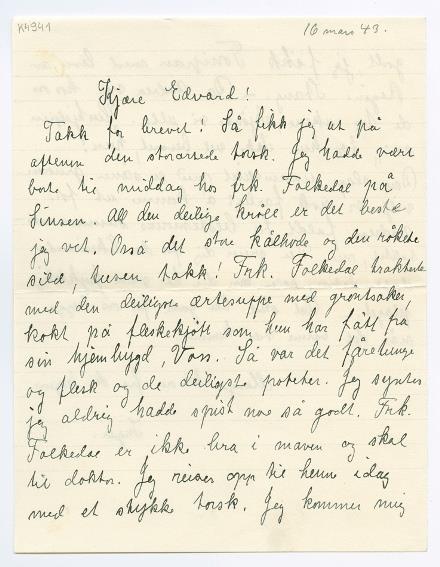 K4941
16 mars 43.
Kjære Edvard!
Takk for brevet! Så fikk jeg ut på
aftenen den storartede torsk. Jeg hadde vært
borte til middag hos frk. Folkedal på
Sinsen. All den deilige krøll er det beste
jeg vet. Osså det store kålhode og den røkete
sild, tusen takk! Frk. Folkedal trakterte
med den deiligste ærtesuppe med grøntsaker,
kokt på fleskekjøtt som hun har fått fra
sin hjembygd, Voss. Så var det fåretunge
og flesk og de deiligste poteter. Jeg syntes
jeg aldrig hadde spist noe så godt. Frk.
Folkedal er ikke bra i maven og skal
til doktor. Jeg reiser opp til henne idag
med et stykke torsk. Jeg kommer mig